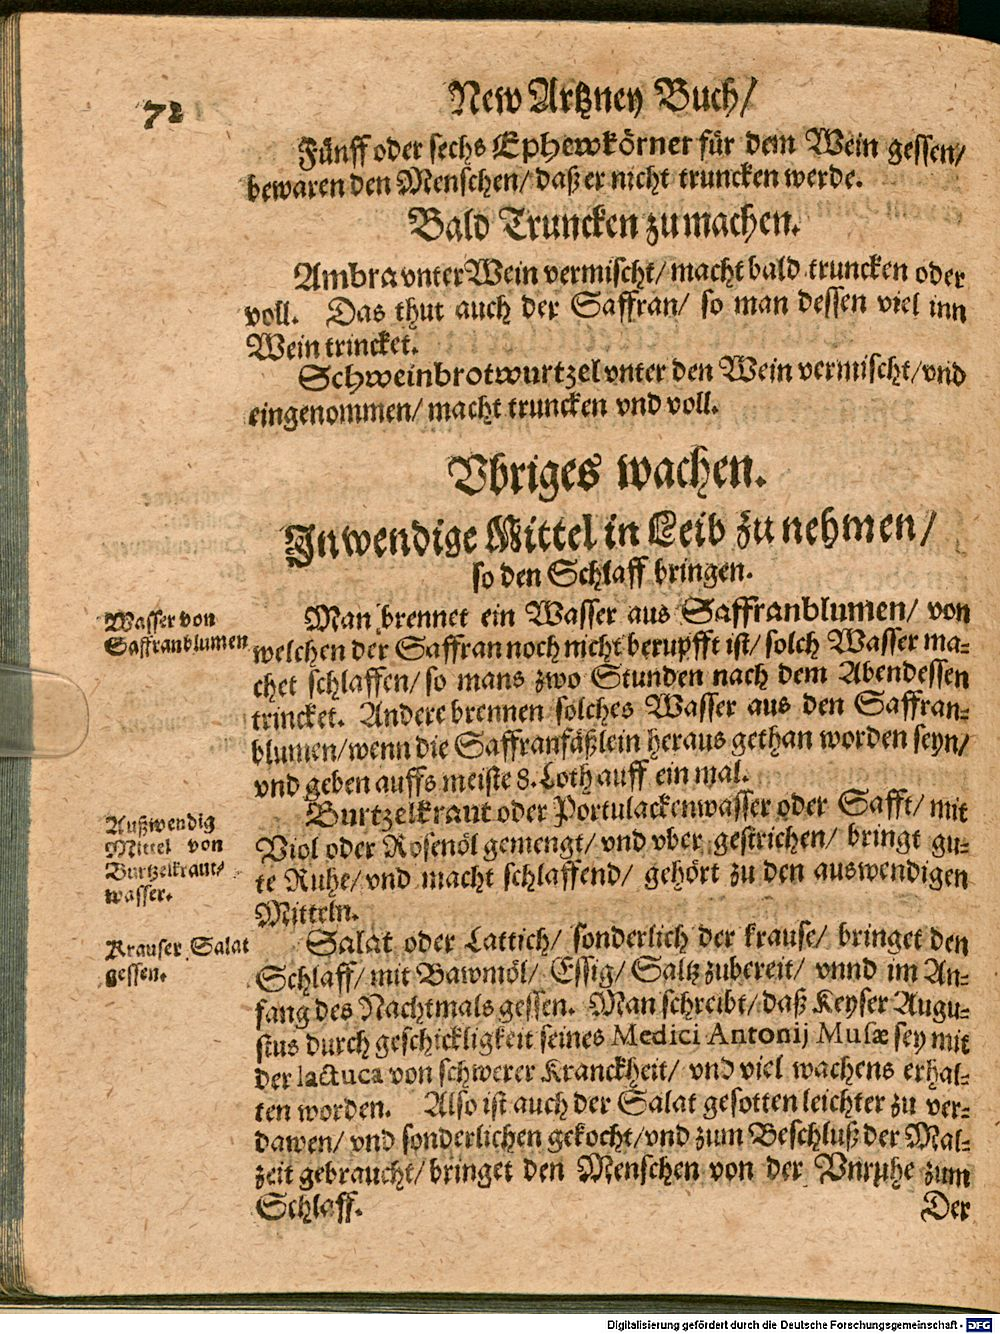 72
New Artzney Buch/
Fünff oder sechs Ephewkörner für dem Wein gessen/
bewaren den Menschen/ daß er nicht truncken werde.
Bald Truncken zu machen.
Ambra vnter Wein vermischt/ macht bald truncken oder
voll. Das thut auch der Saffran/ so man dessen viel inn
Wein trincket.
Schweinbrotwurtzel vnter den Wein vermischt/ vnd
eingenommen/ macht truncken vnd voll.
Vbriges wachen.
Inwendige Mittel in Leib zu nehmen/
so den Schlaff bringen.
Wasser von
Saffranblumen
Man brennet ein Wasser aus Saffranblumen/ von
welchen der Saffran noch nicht berupfft ist/ solch Wasser ma-
chet schlaffen/ so mans zwo Stunden nach dem Abendessen
trincket. Andere brennen solches Wasser aus den Saffran-
blumen/ wenn die Saffranfäßlein heraus gethan worden seyn/
vnd geben auffs meiste 8. Loth auff ein mal.
Außwendig
Mittel von
Burtzelkraut/
wasser.
Burtzelkraut oder Portulackenwasser oder Safft/ mit
Viol oder Rosenöl gemengt/ vnd vber gestrichen/ bringt gu-
te Ruhe/ vnd macht schlaffend/ gehört zu den auswendigen
Mitteln.
Krauser Salat
gessen.
Salat oder Lattich/ sonderlich der krause/ bringet den
Schlaff/ mit Bawmöl/ Essig/ Saltz zubereit/ vnnd im An-
fang des Nachtmals gessen. Man schreibt/ daß Keyser Augu-
stus durch geschickligkeit seines Medici Antonij Musæ sey mit
der lactuca von schwerer Kranckheit/ vnd viel wachens erhal-
ten worden. Also ist auch der Salat gesotten leichter zu ver-
dawen/ vnd sonderlichen gekocht/ vnd zum Beschluß der Mal-
zeit gebraucht/ bringet den Menschen von der Vnruhe zum
Schlaff.
Der
Digitalisierung gefördert durch die Deutsche Forschungsgemeinschaft - DFG